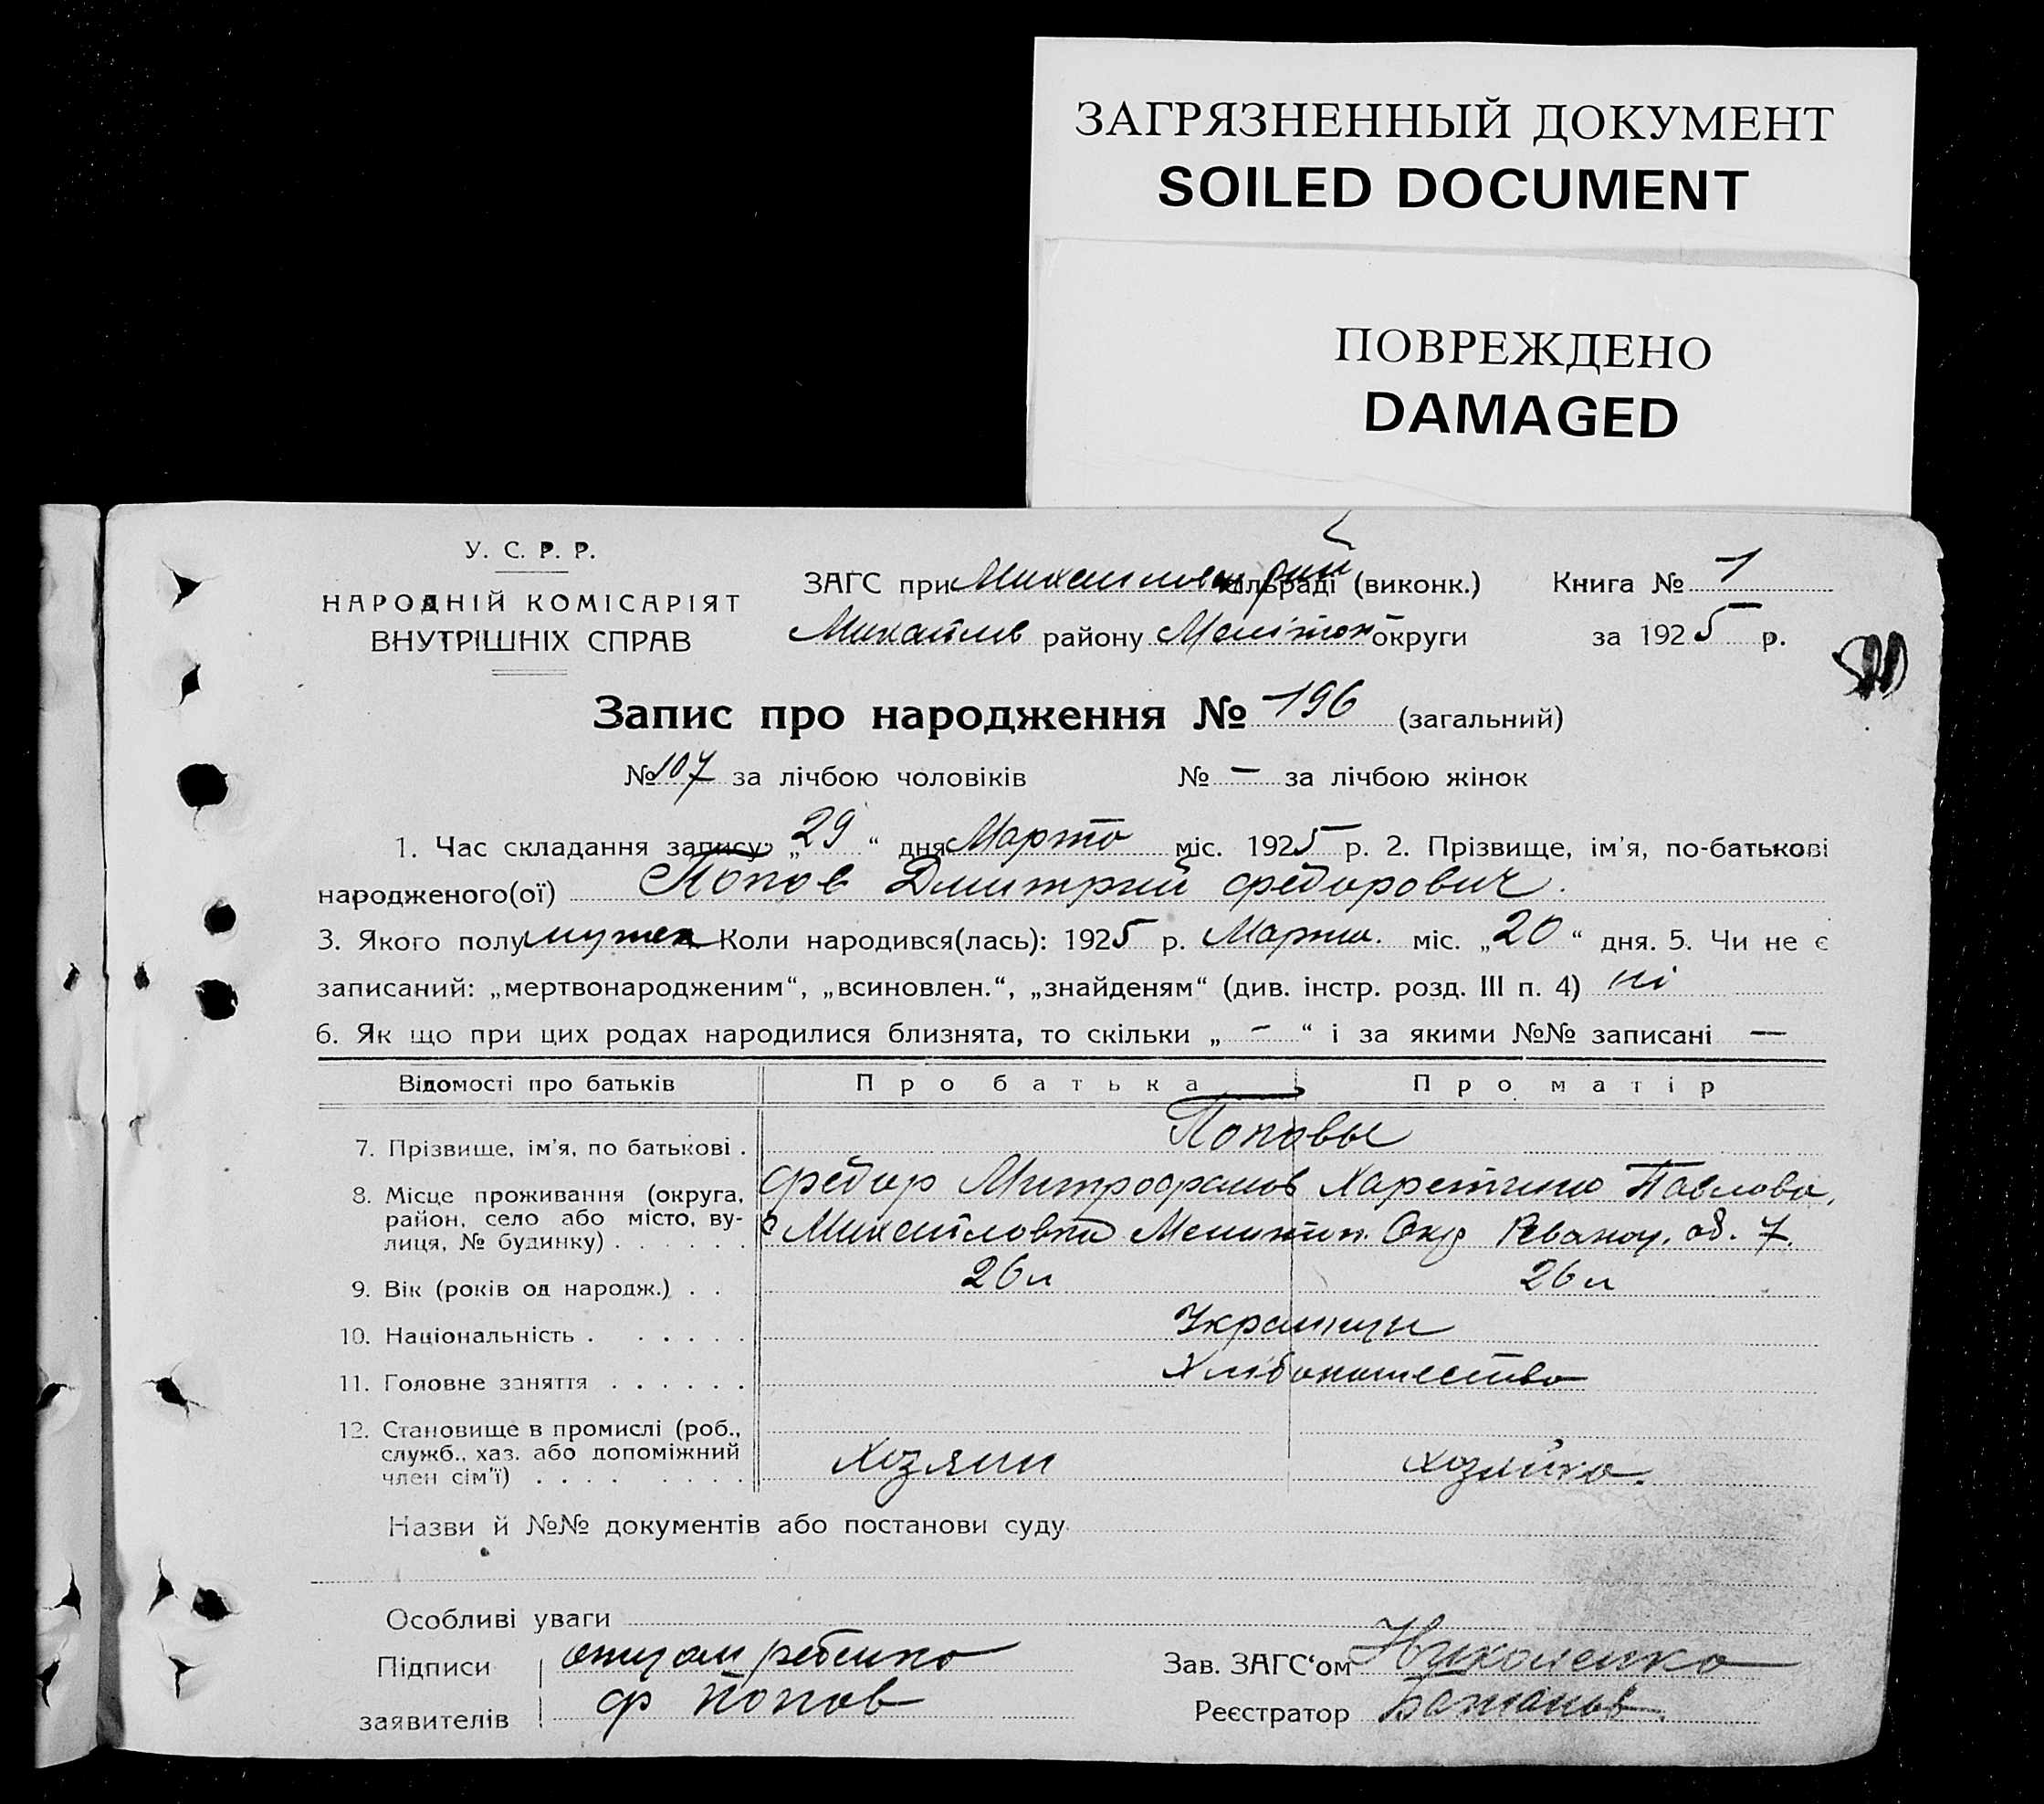 ЗАГРЯЗНЕННЫЙ ДОКУМЕНТ
SOILED DOCUMENT
ПОВРЕЖДЕНО
DAMAGED
У. С. Р. Р.
НАРОДНІЙ КОМІСАРІЯТ
ВНУТРІШНІХ СПРАВ
ЗАГС при сільраді (виконк.) Книга № 1
Михайлів району Мелітоп округи за 1925 р.
Запис про народження № 196 (загальний)
№ 107 за лічбою чоловіків № — за лічбою жінок
1. Час складання запису: „29“ дня Марта міс. 1925 р. 2. Прізвище, ім'я, по-батькові
народженого(ої) Попов Дмитрий Федорович.
3. Якого полу мужск Коли народився(лась): 1925 р. Марта. міс. „20“ дня. 5. Чи не є
записаний: „мертвонародженим“, „всиновлен.“, „знайденям“ (див. інстр. розд. III п. 4) ні
6. Як що при цих родах народилися близнята, то скільки „ – “ і за якими №№ записані —
Відомості про батьків Про батька Про матір
7. Прізвище, ім'я, по батькові . Поповы
Федор Митрофанов Харетина Павлова,
8. Місце проживання (округа, район, село або місто, вулиця, № будинку) . . . . . . с Михайловка Мелитоп. Окр 7.
9. Вік (років од народж.) . . 26 л 26 л
10. Національність . . . . . . Украинцы
11. Головне заняття . . . . . . Хлібопашество
12. Становище в промислі (роб.,
служб., хаз. або допоміжний
член сім'ї) . . . . . . . . Хозяин хозяйка.
Назви й №№ документів або постанови суду
Особливі уваги
Підписи отец ребенка Зав. ЗАГС'ом Николенко
заявителів Ф Попов Реєстратор